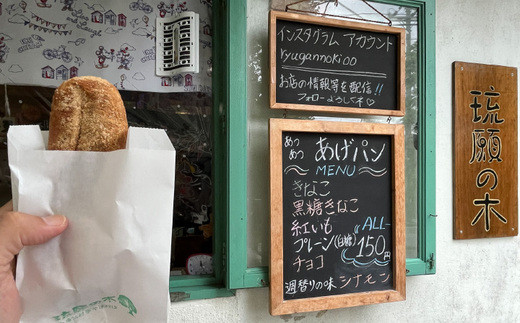 インスタグラム アカウント
ryugannoki00
お店の情報等を配信!!
フォローよろしくネ♡
あつあつ あげパン
MENU
きなこ
黒糖きなこ
紅いも
プレーン(白糖)
チョコ
ALL
150円
週替りの味 シナモン
琉願の木